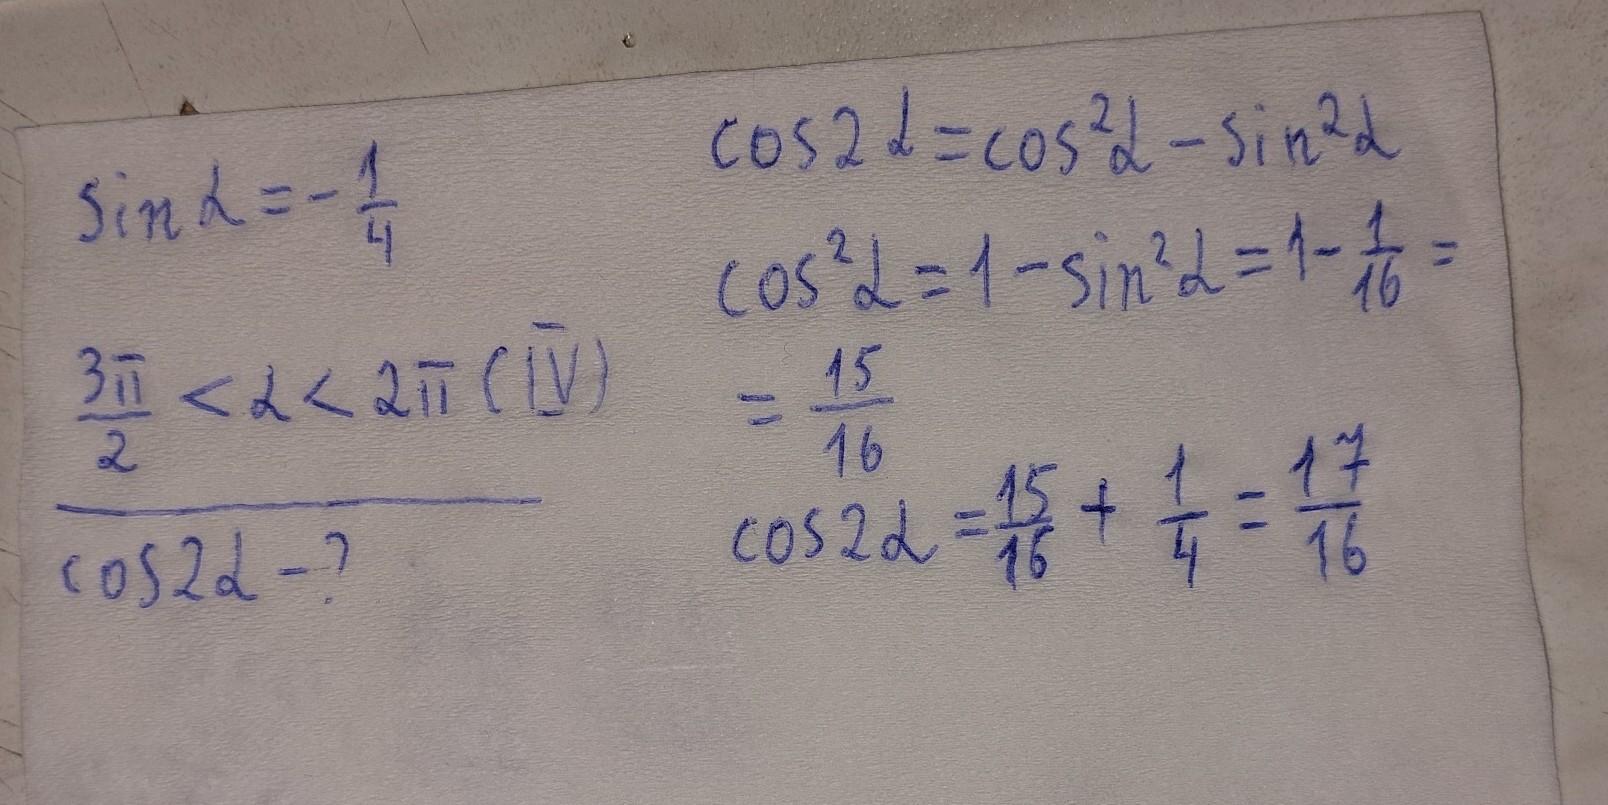 sin α = - 1/4
3π/2 < α < 2π (IV)
cos2α - ?
cos2α = cos²α - sin²α
cos²α = 1 - sin²α = 1 - 1/16 =
= 15/16
cos2α = 15/16 + 1/4 = 17/16